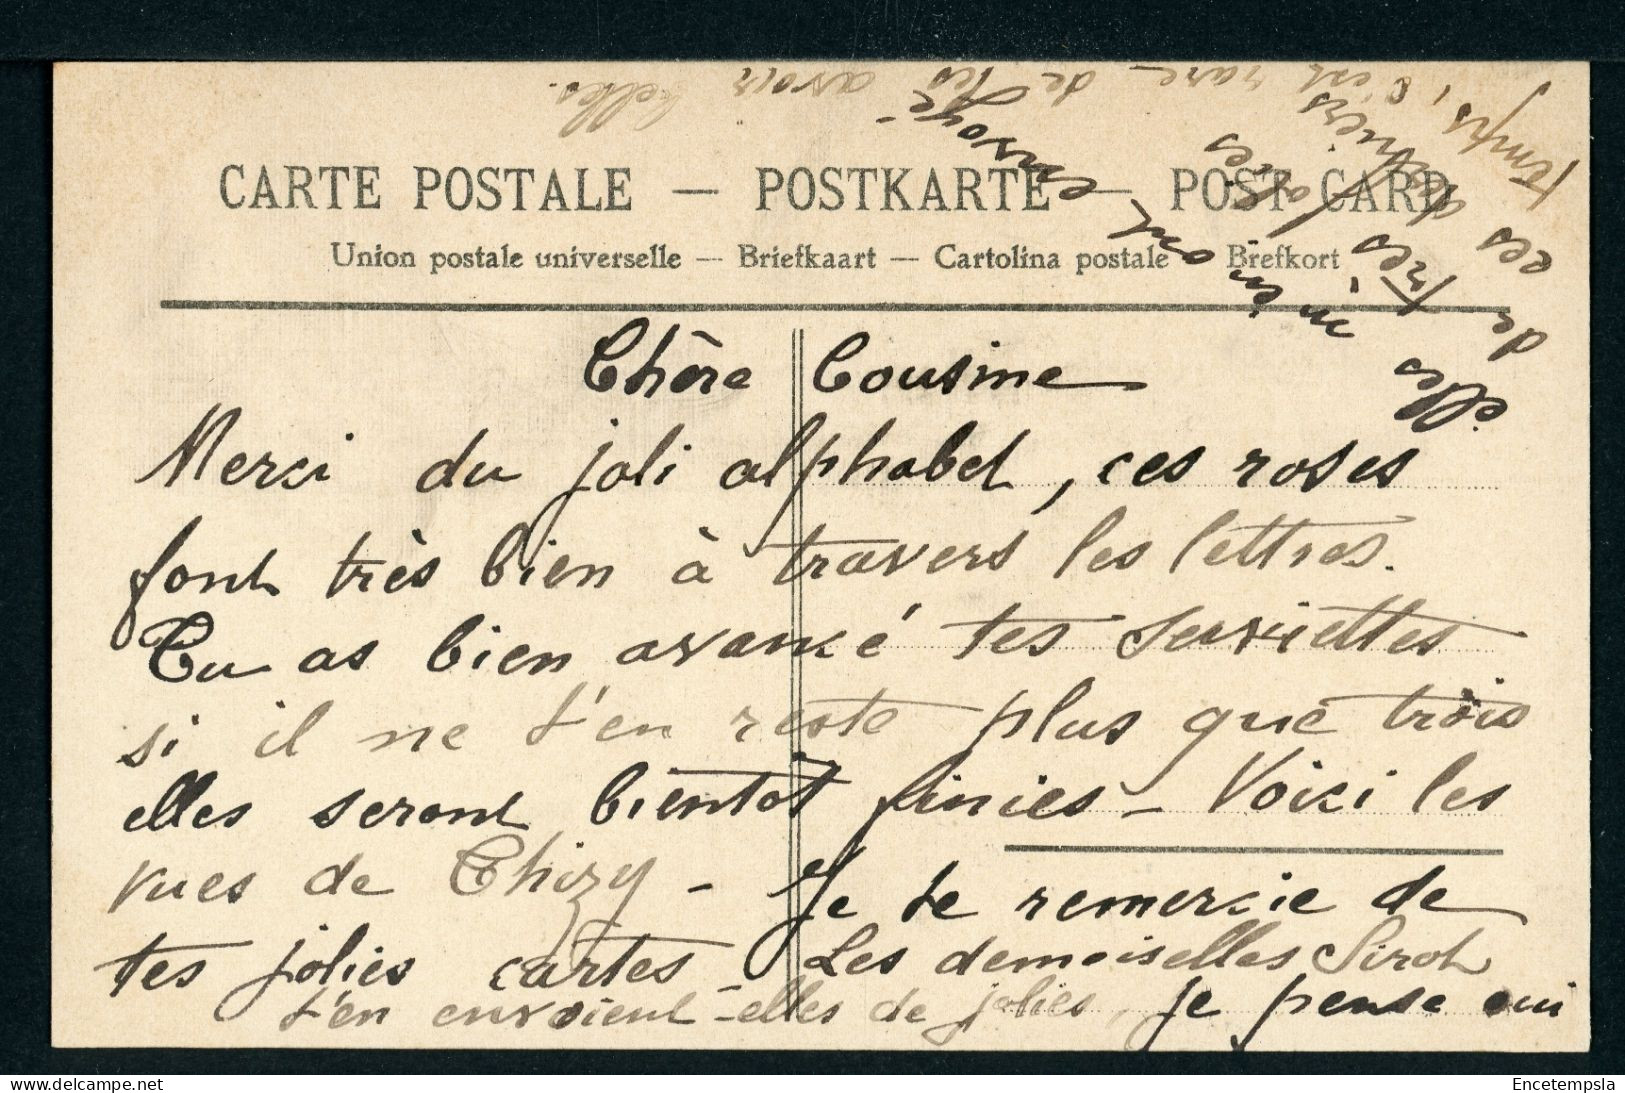 CARTE POSTALE — POSTKARTE — POST CARD
Union postale universelle — Briefkaart — Cartolina postale — Brefkort
Chère Cousine
Merci du joli alphabet, ces roses
font très bien à travers les lettres.
Tu as bien avancé tes serviettes
si il ne t'en reste plus que trois
elles seront bientôt finies - Voici les
vues de Chizy - Je te remercie de
tes jolies cartes - Les demoiselles Sirot
t'en envoient-elles de jolies, je pense oui
elles
m'en ont envoyé
très jolies
de ces derniers
temps, c'est rare de les avoir belles.
Encetempsla